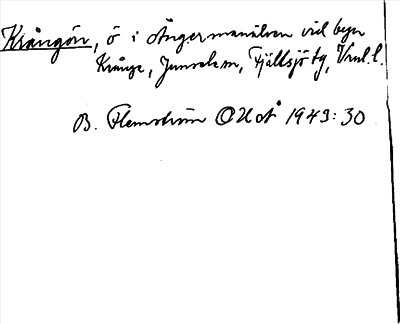 Krångön, ö i Ångermanälven vid byn
Krånge, Junsele sn, Fjällsjö tg, Vnl. l.
B. Flemström OUÅ 1943: 30